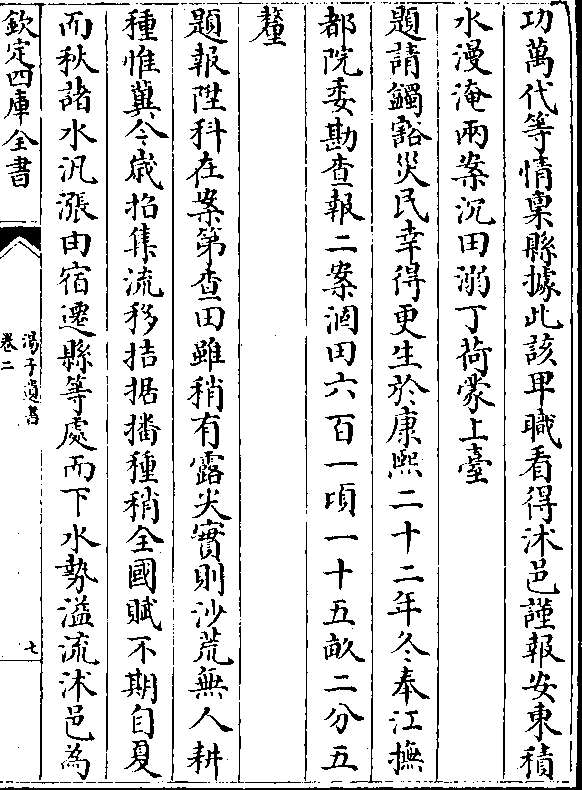 功萬代等情稟縣據此該卑職看得沭邑謹報安東積
水漫淹兩案沉田溺丁荷蒙上臺
題請蠲豁災民幸得更生於康熙二十二年冬奉江撫
都院委勘查報二案涸田六百一頃一十五畝二分五
釐
題報陞科在案第查田雖稍有露尖實則沙荒無人耕
種惟冀今歲招集流移拮据播種稍全國賦不期自夏
而秋諸水汎漲由宿遷縣等處而下水勢溢流沭邑為
欽定四庫全書
湯子遺書
卷二
七